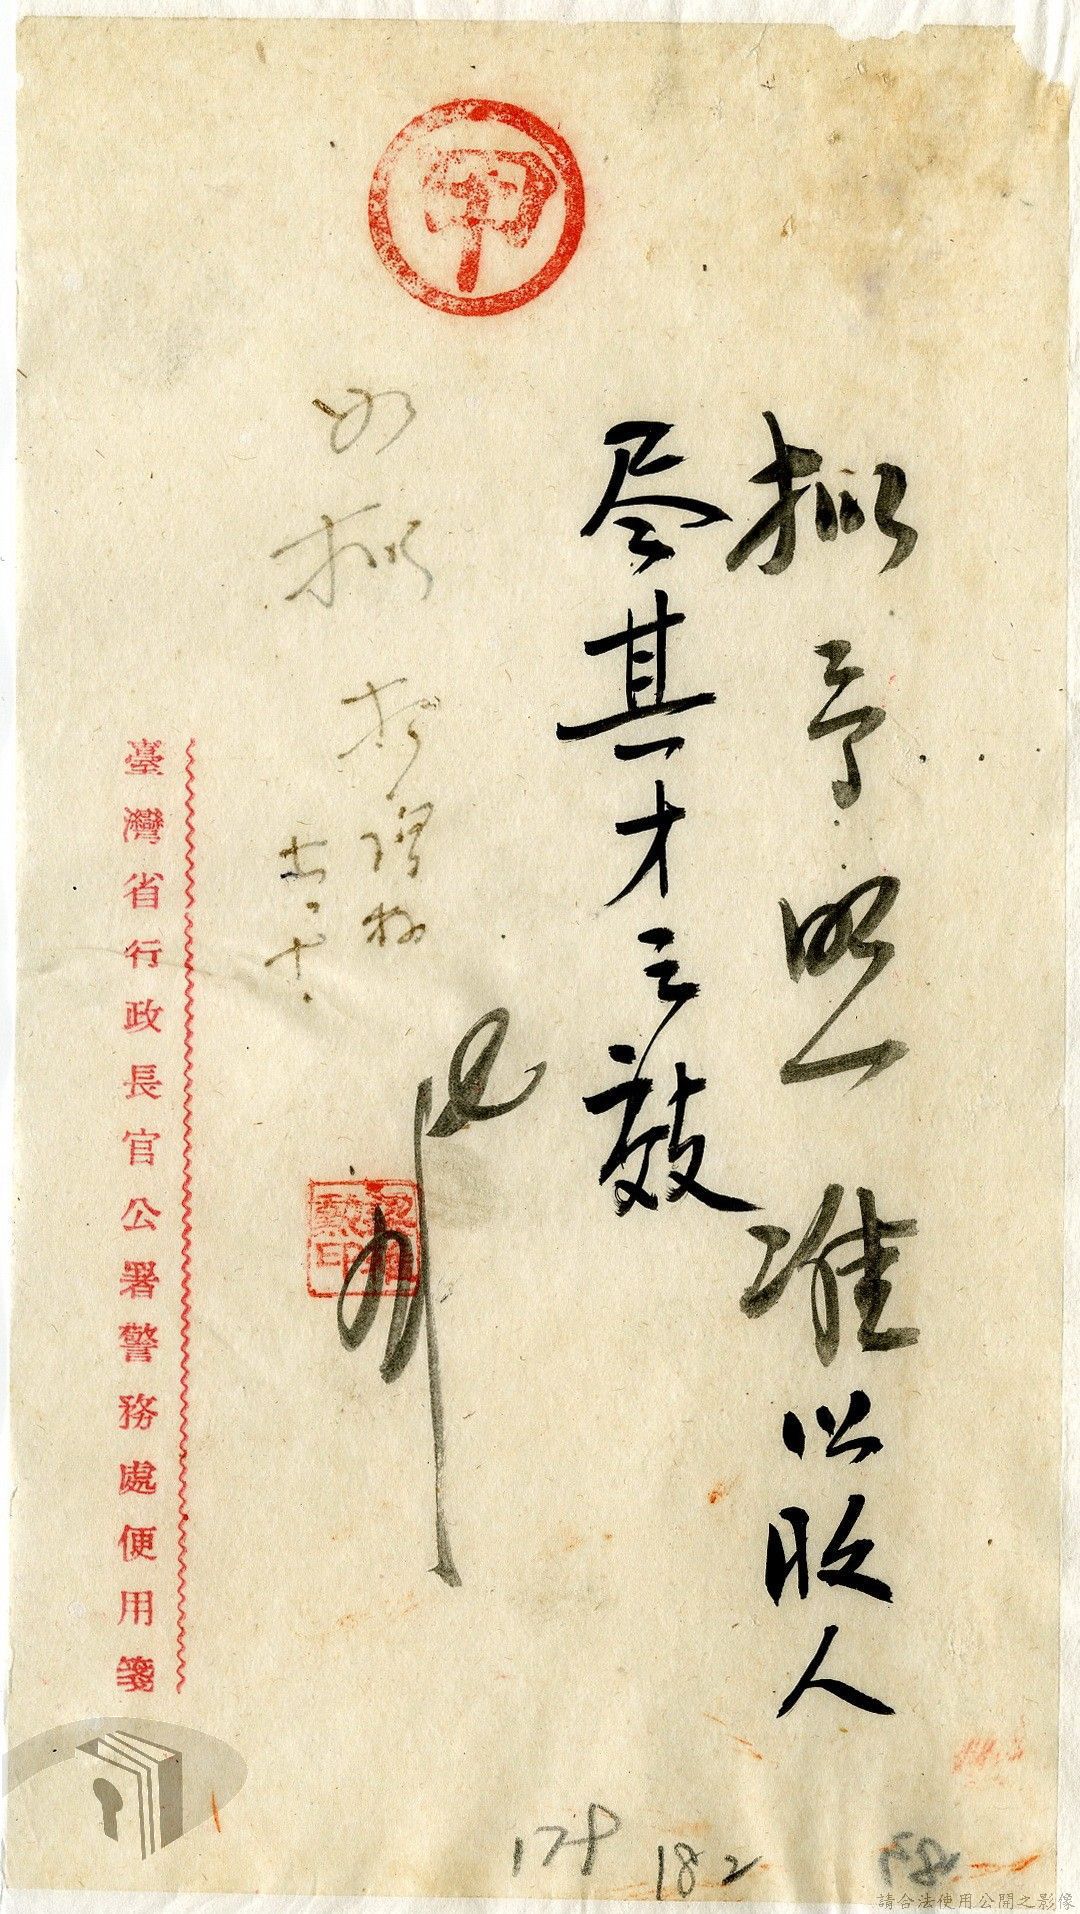 甲
拟予照准以收人
尽其才之效
如拟
臺灣省行政長官公署警務處便用箋
179
182
請合法使用公開之影像